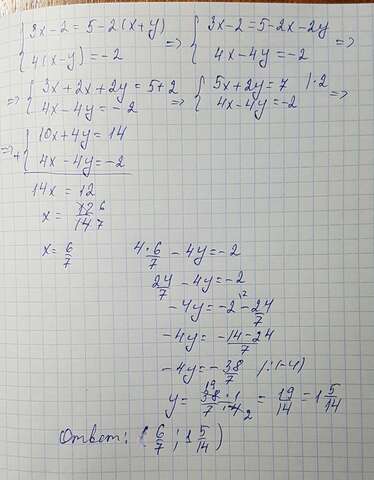 { 3x-2 = 5-2(x+y) => { 3x-2 = 5-2x-2y =>
{ 4(x-y) = -2 { 4x-4y = -2
=> { 3x+2x+2y = 5+2 => { 5x+2y = 7 |·2 =>
{ 4x-4y = -2 { 4x-4y = -2
=> + { 10x+4y = 14
{ 4x-4y = -2
14x = 12
x = 12 6/14 7
x = 6/7 4·6/7 - 4y = -2
24/7 - 4y = -2
-4y = -2 - 24/7
-4y = -14-24/7
-4y = -38/7 /:(-4)
y = 38 19·1/7·4 2 = 19/14 = 1 5/14
Ответ: (6/7 ; 1 5/14)